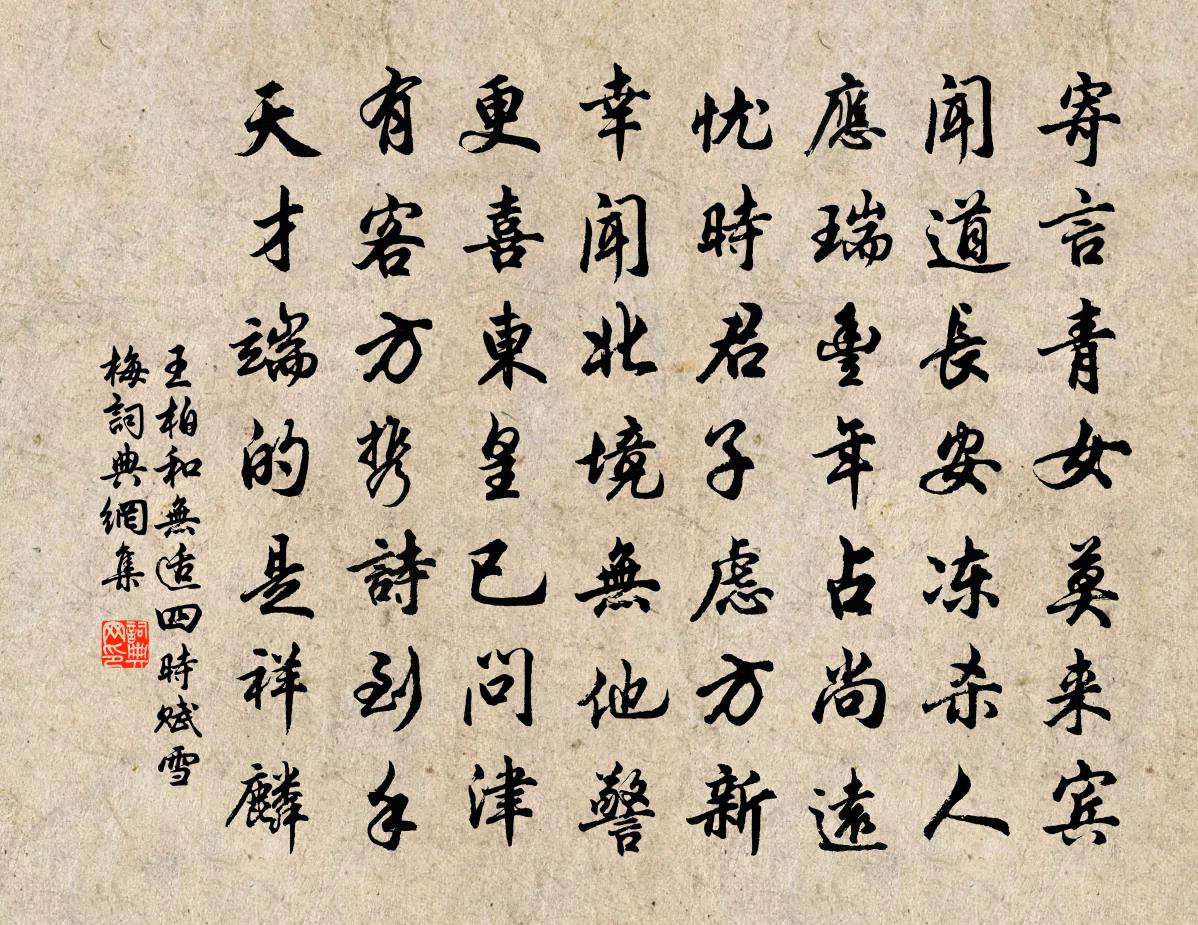 寄言青女莫来宾
闻道長安冻杀人
應瑞豐年占尚遠
忧時君子慮方新
幸闻北境無他警
更喜東皇已问津
有客方携詩到手
天才端的是祥麟
王柏和無适四時赋雪
梅詞典網集
詞典网印